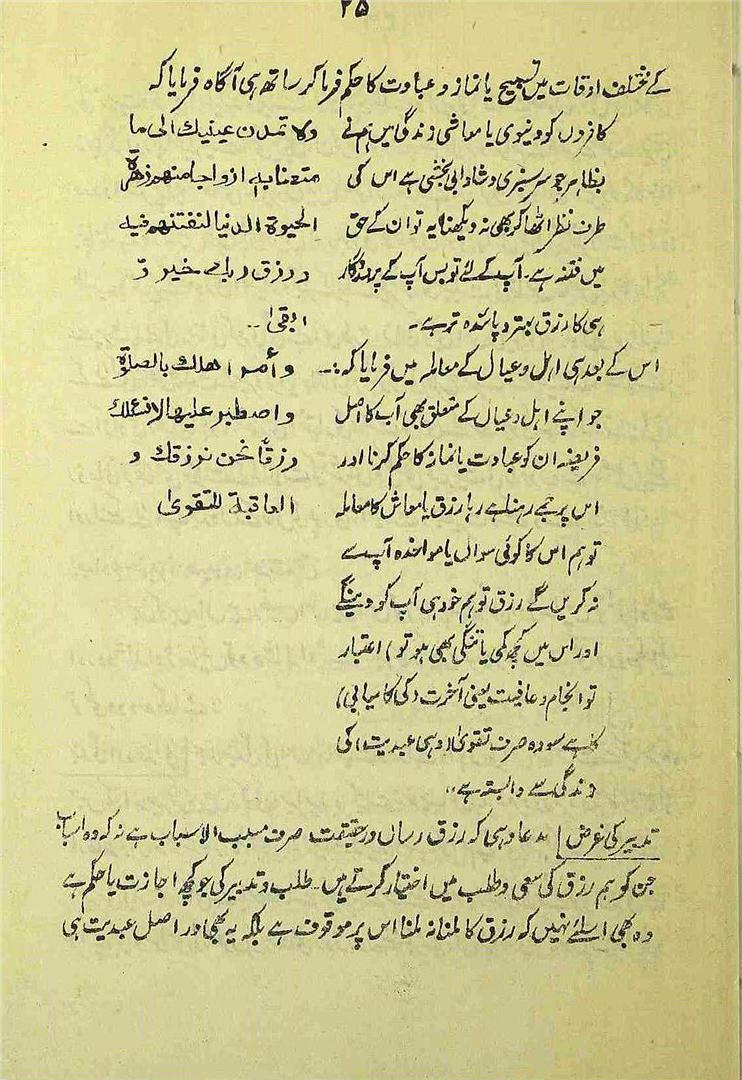 ۲۵
کے مختلف اوقات میں تسبیح یا نماز و عبادت کا حکم فرما کر ساتھ ہی آگاہ فرمایا کہ
کافروں کو دنیوی یا معاشی زندگی میں ہم نے ولا تمدن عینیك الی ما
بظاہر جو سرسبزی و شادابی بخشی ہے اس کی متعنا بہ ازواجا منھم زھرة
طرف نظر اٹھا کر بھی نہ دیکھنا یہ تو ان کے حق الحیوة الدنیا لنفتنھم فیہ
میں فتنہ ہے۔ آپ کے لئے تو بس آپ کے پروردگار ورزق ربك خیر وّ
ہی کا رزق بہتر و پائندہ تر ہے۔ ابقیٰ۔۔
اس کے بعد ہی اہل و عیال کے معاملہ میں فرمایا کہ:۔ وأمر اھلك بالصلوٰة
جو اپنے اہل و عیال کے متعلق بھی آپ کا اصل واصطبر علیھا لا نسئلك
فریضہ ان کو عبادت یا نماز کا حکم کرنا اور رزقاً نحن نرزقك و
اس پر جمے رہنا ہے رہا رزق یا معاش کا معاملہ العاقبة للتقویٰ
تو ہم اس کا کوئی سوال یا مواخذہ آپ سے
نہ کریں گے رزق تو ہم خود ہی آپ کو دینگے
اور اس میں کچھ کمی یا تنگی بھی ہو تو) اعتبار
تو انجام و عاقبت یعنی آخرت (کی کامیابی)
کا ہے سو وہ صرف تقویٰ (وہی عبدیت) کی
زندگی سے وابستہ ہے۔۔
تدبیر کی غرض | مدعا وہی کہ رزق رساں درحقیقت صرف مسبب الاسباب ہے نہ کہ وہ اسباب
جن کو ہم رزق کی سعی و طلب میں اختیار کرتے ہیں۔ طلب و تدبیر کی جو کچھ اجازت یا حکم ہے
وہ بھی اسلئے نہیں کہ رزق کا ملنا نہ ملنا اس پر موقوف ہے بلکہ یہ بھی اور اصل عبدیت ہی